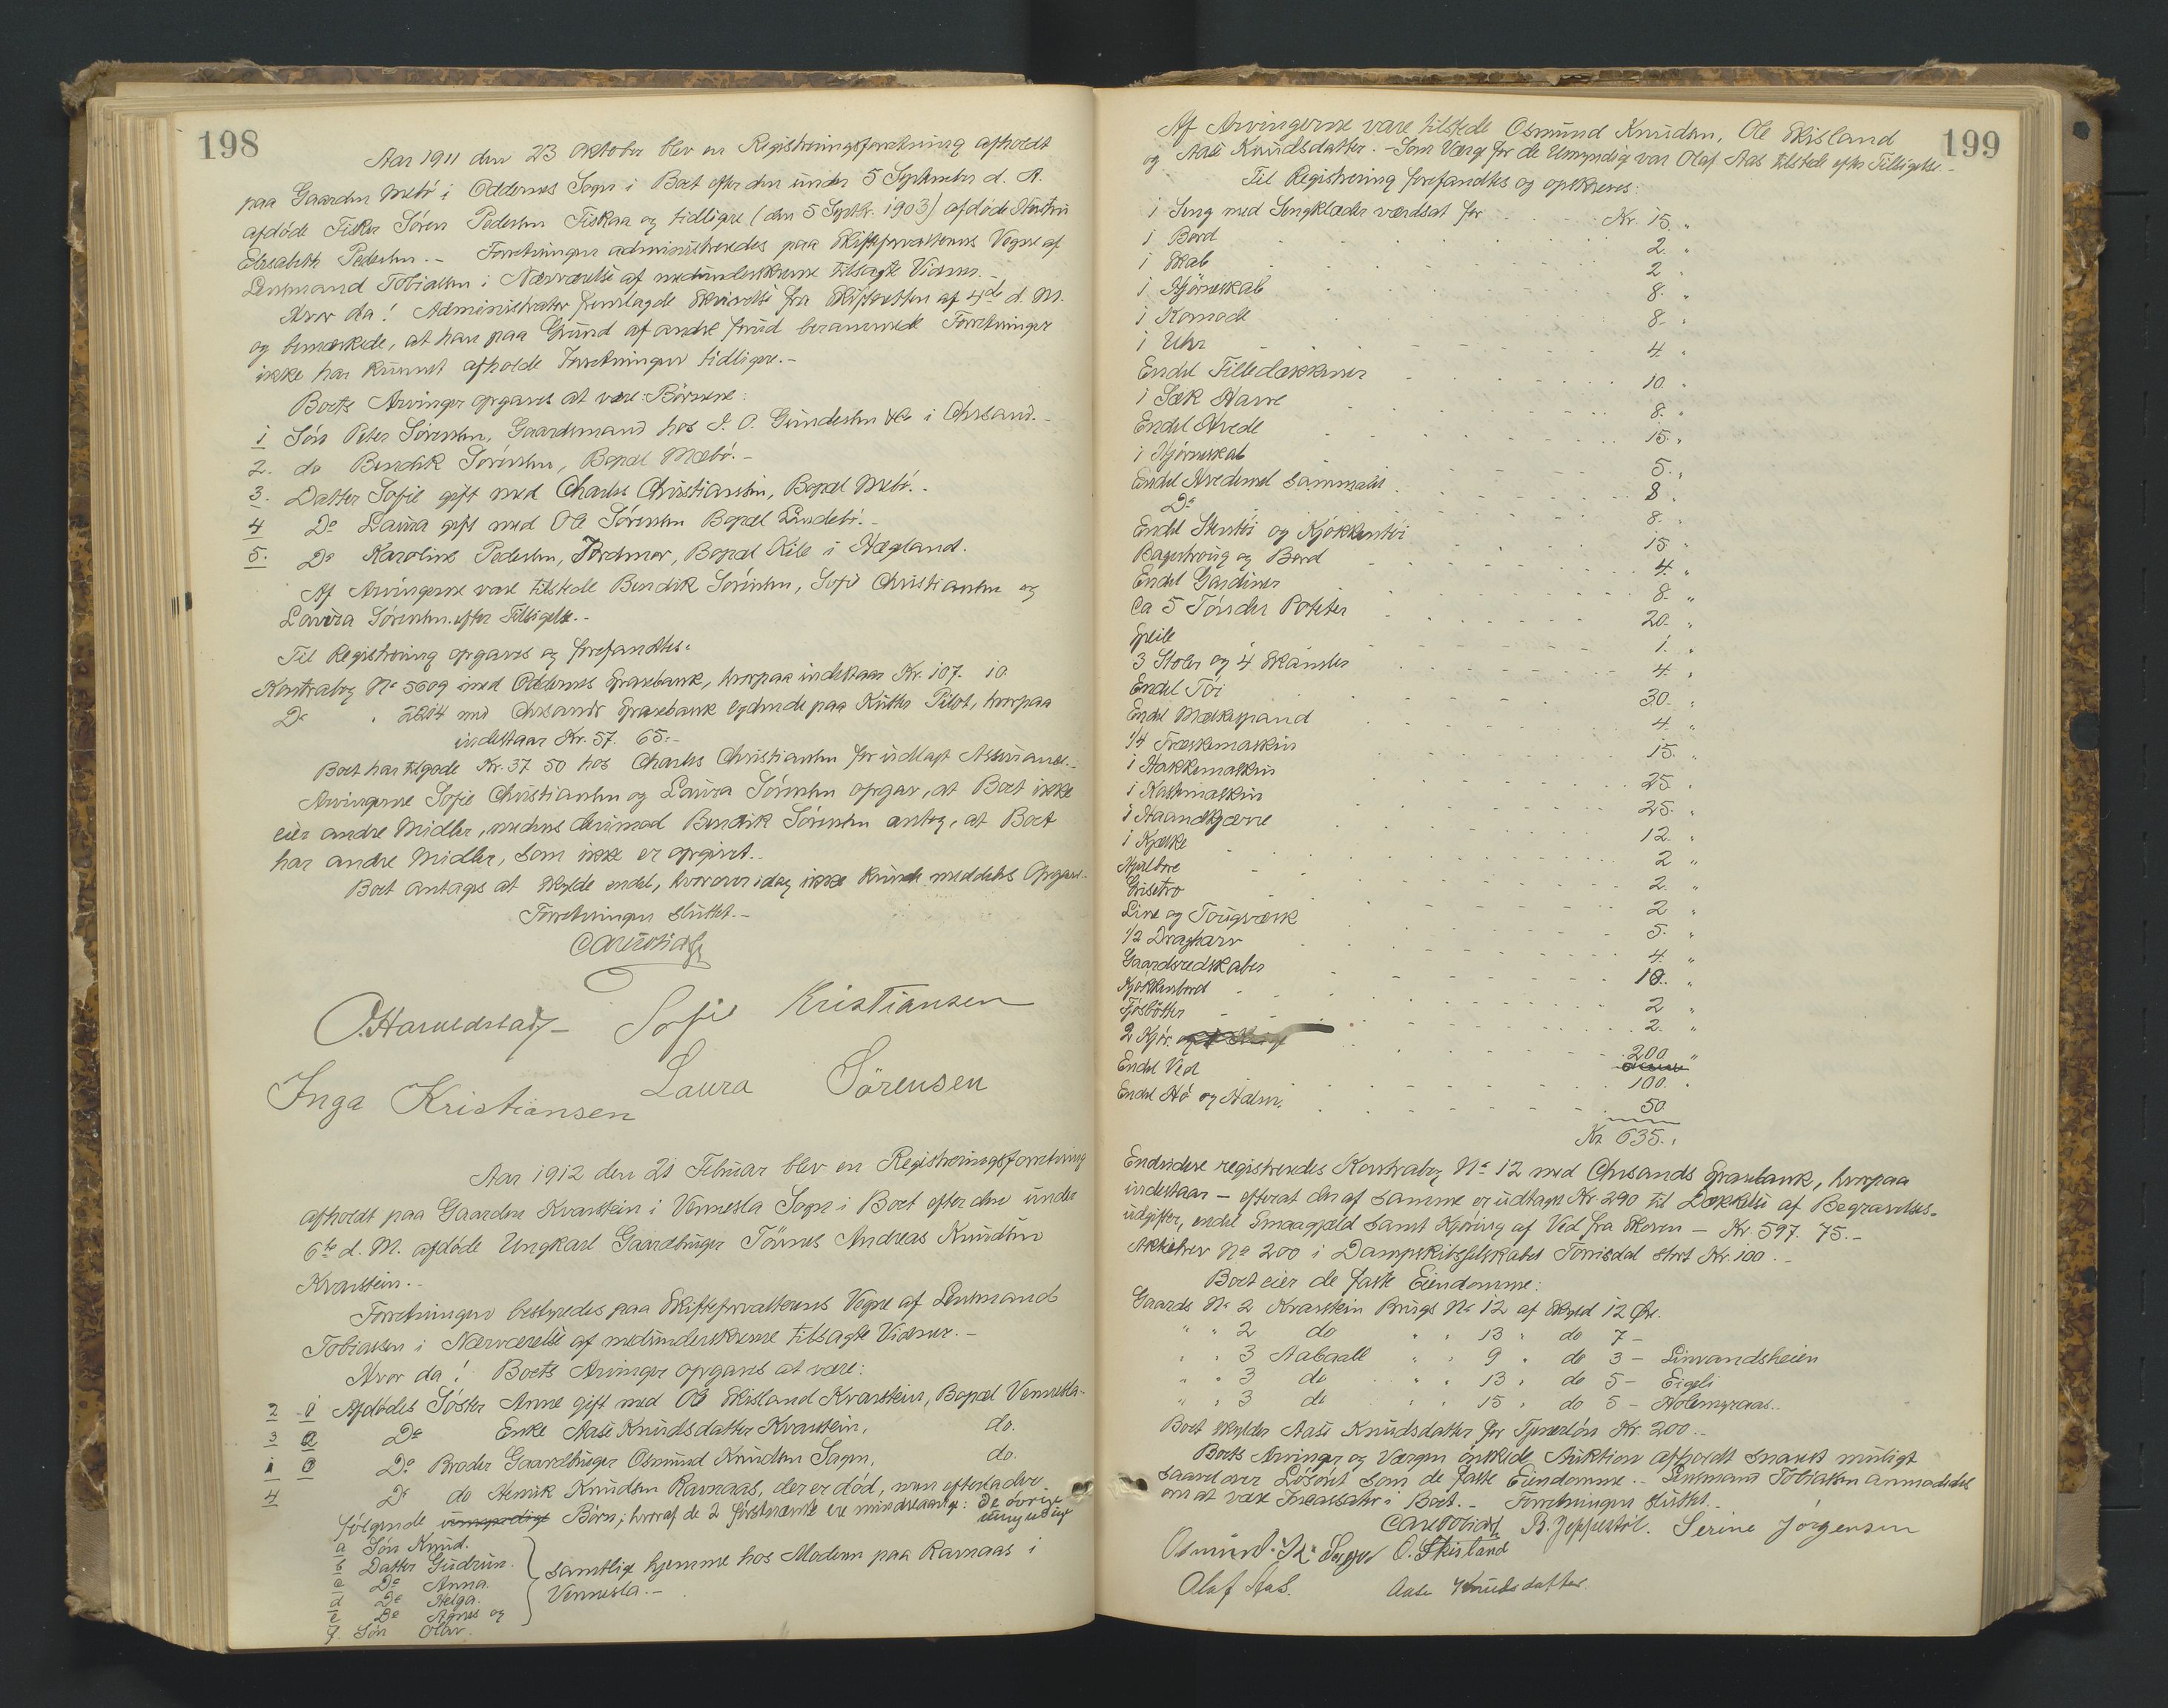 198
Aar 1911 den 23 Oktober blev en Registreringsforretning afholdt
paa Gaarden Mebö i Oddernes Sogn i Boet efter den under 5 September d. A.
afdöde Fisker Sören Pedersen Fiskaa og tidligere (den 5 Septbr. 1903) afdöde Hustru
Elisabeth Pedersen.- Forretningen administreredes paa Skifteforvalterens Vegne af
Lensmand Tobiassen i Nærværelse af medunderskrevne tilsagte Vidner.-
Hvor da! Administrator fremlagde Skrivelse fra Skifteretten af 4de d. M.
og bemærkede, at han paa Grund af andre forud berammede Forretninger
ikke har kunnet afholde Forretningen tidligere.-
Boets Arvinger opgaves at være: Börnene:
1 Sön Peter Sörensen, Gaardsmand hos S. O. Gundersen & Co i Chrsand.-
2. do Bendik Sörensen, Bopæl Mæbö.-
3. Datter Sofie gift med Charles Christiansen, Bopæl Mebö.-
4 Do Laura gift med Ole Sörensen Bopæl Lindebö.-
5. Do Karoline Pedersen, Jordmor, Bopæl Kile i Hægland.
Af Arvingerne vare tilstede Bendik Sörensen, Sofie Christiansen og
Laura Sörensen efter Tilsigelse.-
Til Registrering opgaves og forefandtes:
Kontrabog No 5609 med Oddernes Sparebank, hvorpaa indestaar Kr. 107. 10
Do " 2214 med Chrsands Sparebank lydende paa Kutter Pilot, hvorpaa
indestaar Kr. 57. 65.-
Boet har tilgode Kr. 37 50 hos Charles Christiansen for udlagt Assurance.-
Arvingerne Sofie Christiansen og Laura Sörensen opgav, at Boet ikke
eier andre Midler, medens derimod Bendik Sörensen antog, at Boet
har andre Midler, som ikke er opgivet.-
Boet antages at skylde endel, hvorover idag ikke kunde meddeles Opgave.-
Forretningen sluttet.-
O. Haraldstad Sofie Kristiansen
Inga Kristiansen Laura Sörensen
Aar 1912 den 21 Februar blev en Registreringsforretning
afholdt paa Gaarden Kvarstein i Vennesla Sogn i Boet efter den under
6te d. M. afdöde Ungkarl Gaardbruger Tönnes Andreas Knudsen
Kvarstein.-
Forretningen bestyredes paa Skifteforvalterens Vegne af Lensmand
Tobiassen i Nærværelse af medunderskrevne tilsagte Vidner.-
Hvor da! Boets Arvinger opgaves at være:
2 1 Afdödes Söster Anne gift med Ole Skisland Kvarstein, Bopæl Vennesla.
3 2 Do Enke Aase Knudsdatter Kvarstein, do.
1 3 Do Broder Gaardbruger Osmund Knudsen Sagen, do.
4 Do do Henrik Knudsen Ravnaas, der er död, men efterlader
følgende umyndige Börn; hvoraf de 2 förstnævnte ere mindreaarige: de övrige
umyndige
a Sön Knud.
b Datter Gudrun.
c Do Anna.
d Do Helga.
e Do Agnes og
f. Sön Olav.
samtlige hjemme hos Moderen paa Ravnaas i
Vennesla.-
199
Af Arvingerne vare tilstede Osmund Knudsen, Ole Skisland
og Aase Knudsdatter.- Som Værge for de Umyndige var Olaf Aas tilstede efter Tilsigelse.-
Til Registrering forefandtes og opskreves:
1 Seng med Sengklæder værdsat for Kr. 15. "
1 Bord 2. "
1 Skab 2 "
1 Hjörneskab 8. "
1 Komode 8. "
1 Uhr 4. "
Endel Filledækkener 10. "
1 Sæk Havre 8. "
Endel Hvede 15. "
1 Hjörneskab 5. "
Endel Hvedemel sammalt 8 "
Do 8. "
Endel Stentöi og Kjökkentöi 15 "
Bagetroug og Bord 4. "
Endel Gardiner 8. "
Ca 5 Tönder Poteter 20. "
Speile 1. "
3 Stoler og 4 Skamler 4. "
Endel Töi 30. "
Endel Mælkespand 4. "
1/4 Træskemaskin 15. "
1 Hakkemaskin 25. "
1 Kastemaskin 25. "
1 Haandkjærre 12. "
1 Kjælke 2 "
Hjulbore 2. "
Grisetro 2 "
Line og Tougværk 5. "
1/2 Dragharv 4. "
Gaardsredskaber 10. "
Kjökkenbord 2 "
Fjösbötter 2. "
2 Kjör. 200 "
Endel Ved 100. "
Endel Hö og Halm. 50
Kr 635. "
Endvidere registreredes Kontrabog No 12 med Chrsands Sparebank, hvorpaa
indestaar - efterat deraf samme er udtaget Kr. 290 til Dækkelse af Begravelses-
udgifter, endel Smaagjæld samt Kjöring af Ved fra Skoven - Kr. 597. 75.-
Aktiebrev No 200 i Dampskibsselskabet Torrisdal stort Kr. 100.-
Boet eier de faste Eiendomme:
Gaards No 2 Kvarstein Brugs No 12 af Skyld 12 Öre.
" " 2 do " " 13 " do 7 -
" " 3 Aabaall " " 9 " do 3 - Linvandsheien
" " 3 do " " 13 " do 5 - Eigeli
" " 3 do " " 15 " do 5 - Holemyraas.-
Boet skylder Aase Knudsdatter for Tjenerlön Kr. 200.-
Boets Arvinger og Værgen önskede Auktion afholdt snarest muligt
saavel over Lösöret som de faste Eiendomme.- Lensmand Tobiassen anmodedes
om at være Incassator i Boet.- Forretningen sluttet.-
B. Jeppestöl. Serine Jörgensen
Osmund. K. Sagen O. Skisland
Olaf Aas. Aase Knudsdatter